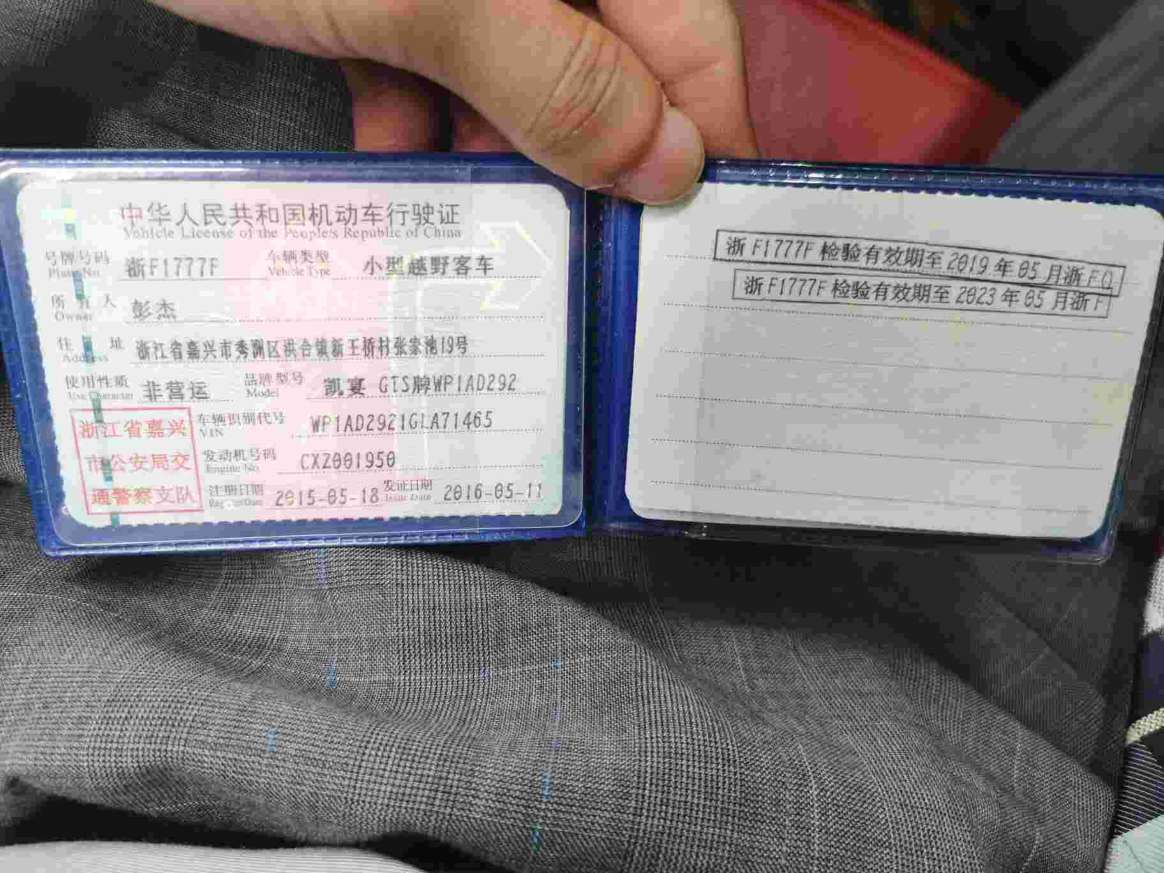 中华人民共和国机动车行驶证
Vehicle License of the People's Republic of China
号牌号码 浙F1777F 车辆类型 小型越野客车
Plate No. Vehicle Type
所有人 彭杰
Owner
住址 浙江省嘉兴市秀洲区洪合镇新王桥村张家池19号
Address
使用性质 非营运 品牌型号 凯宴 GTS牌WP1AD292
Use Character Model
浙江省嘉兴
市公安局交
通警察支队
车辆识别代号 WP1AD2921GLA71465
VIN
发动机号码 CXZ001950
Engine No.
注册日期 2015-05-18 发证日期 2016-05-11
Register Date Issue Date
浙F1777F 检验有效期至 2019 年 05 月浙F
浙F1777F 检验有效期至 2023 年 05 月浙F